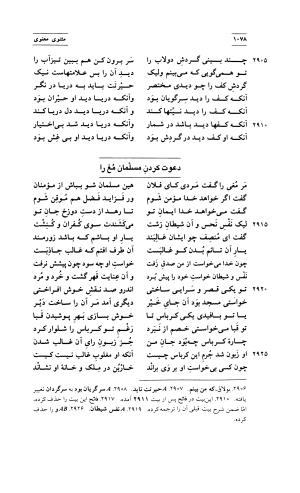 ۱۰۷۸
مثنوی معنوی
۲۹۰۵ چند بینی گردش دولاب را سر برون کن هم ببین تیزآب را
تو همی‌گویی که می‌بینم ولیک دید آن را بس علامتهاست نیک
گردش کف را چو دیدی مختصر حیرتت باید به دریا در نگر
آنکه کف را دید سرگویان بود وآنکه دریا دید او حیران بود
آنکه کف را دید نیتها کند وآنکه دریا دید دل دریا کند
۲۹۱۰ آنکه کفها دید باشد در شمار وآنکه دریا دید شد بی‌اختیار
آنکه او کف دید در گردش بود وآنکه دریا دید او بی غش بود
دعوت کردن مسلمان مغ را
مر مغی را گفت مردی کای فلان هین مسلمان شو بباش از مؤمنان
گفت اگر خواهد خدا مؤمن شوم ور فزاید فضل هم موقن شوم
گفت می‌خواهد خدا ایمان تو تا رهد از دست دوزخ جان تو
۲۹۱۵ لیک نفس نحس و آن شیطان زشت می‌کشندت سوی کفران و کنشت
گفت ای منصف چو ایشان غالبند یار او باشم که باشد زورمند
یار آن تانم بدن کو غالبست آن طرف افتم که غالب جاذبست
چون خدا می‌خواست از من صدق زفت خواست او چه سود چون پیشش نرفت
نفس و شیطان خواست خود را پیش برد و آن عنایت قهر گشت و خرد و مرد
۲۹۲۰ تو یکی قصر و سرایی ساختی اندرو صد نقش خوش افراختی
خواستی مسجد بود آن جای خیر دیگری آمد مر آن را ساخت دیر
یا تو بافیدی یکی کرباس تا خوش بسازی بهر پوشیدن قبا
تو قبا می‌خواستی خصم از نبرد رغم تو کرباس را شلوار کرد
چارهٔ کرباس چه‌بود جان من جز زبون رای آن غالب شدن
۲۹۲۵ او زبون شد جرم این کرباس چیست آنکه او مغلوب غالب نیست کیست
چون کسی بی‌خواست او بر وی براند خاربن در ملک و خانهٔ او نشاند